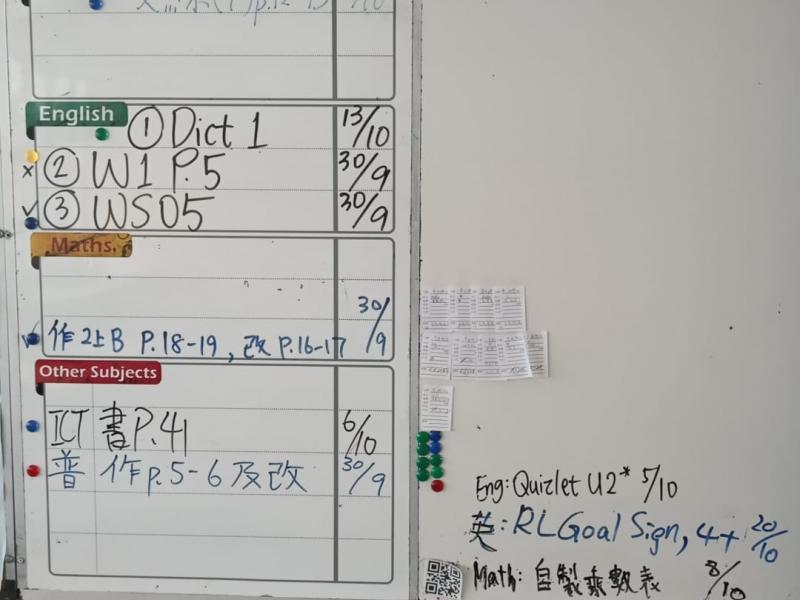 English
① Dict 1 13/10
× ② W1 P.5 30/9
✓ ③ WS05 30/9
Maths
✓ 作2上B P.18-19, 改 P.16-17 30/9
Other Subjects
ICT 書P.41 6/10
普 作p.5-6及改 30/9
Eng: Quizlet U2* 5/10
英: RL Goal Sign, 4+ 20/10
Math: 自製乘數表 8/10